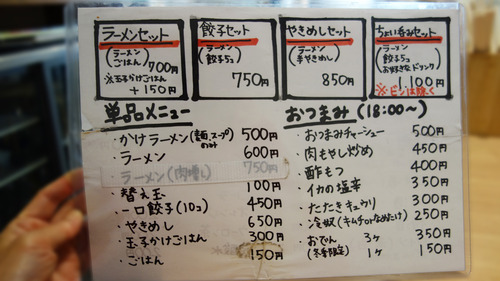 ラーメンセット
(ラーメン
ごはん)
700円
※玉子かけごはん
+150円
餃子セット
(ラーメン
餃子5コ)
750円
やきめしセット
(ラーメン
半やきめし)
850円
ちょい呑みセット
(ラーメン
餃子5コ
お好きなドリンク)
1,100円
※ビンは除く
単品メニュー
・かけラーメン(麺、スープのみ) 500円
・ラーメン 600円
・ラーメン(肉増し) 750円
・替え玉 100円
・一口餃子(10コ) 450円
・やきめし 650円
・玉子かけごはん 300円
・ごはん 150円
おつまみ(18:00〜)
・おつまみチャーシュー 500円
・肉もやし炒め 450円
・酢もつ 400円
・イカの塩辛 350円
・たたきキュウリ 300円
・冷奴(キムチorなめたけ) 250円
・おでん 3ヶ 350円
(冬季限定) 1ヶ 150円